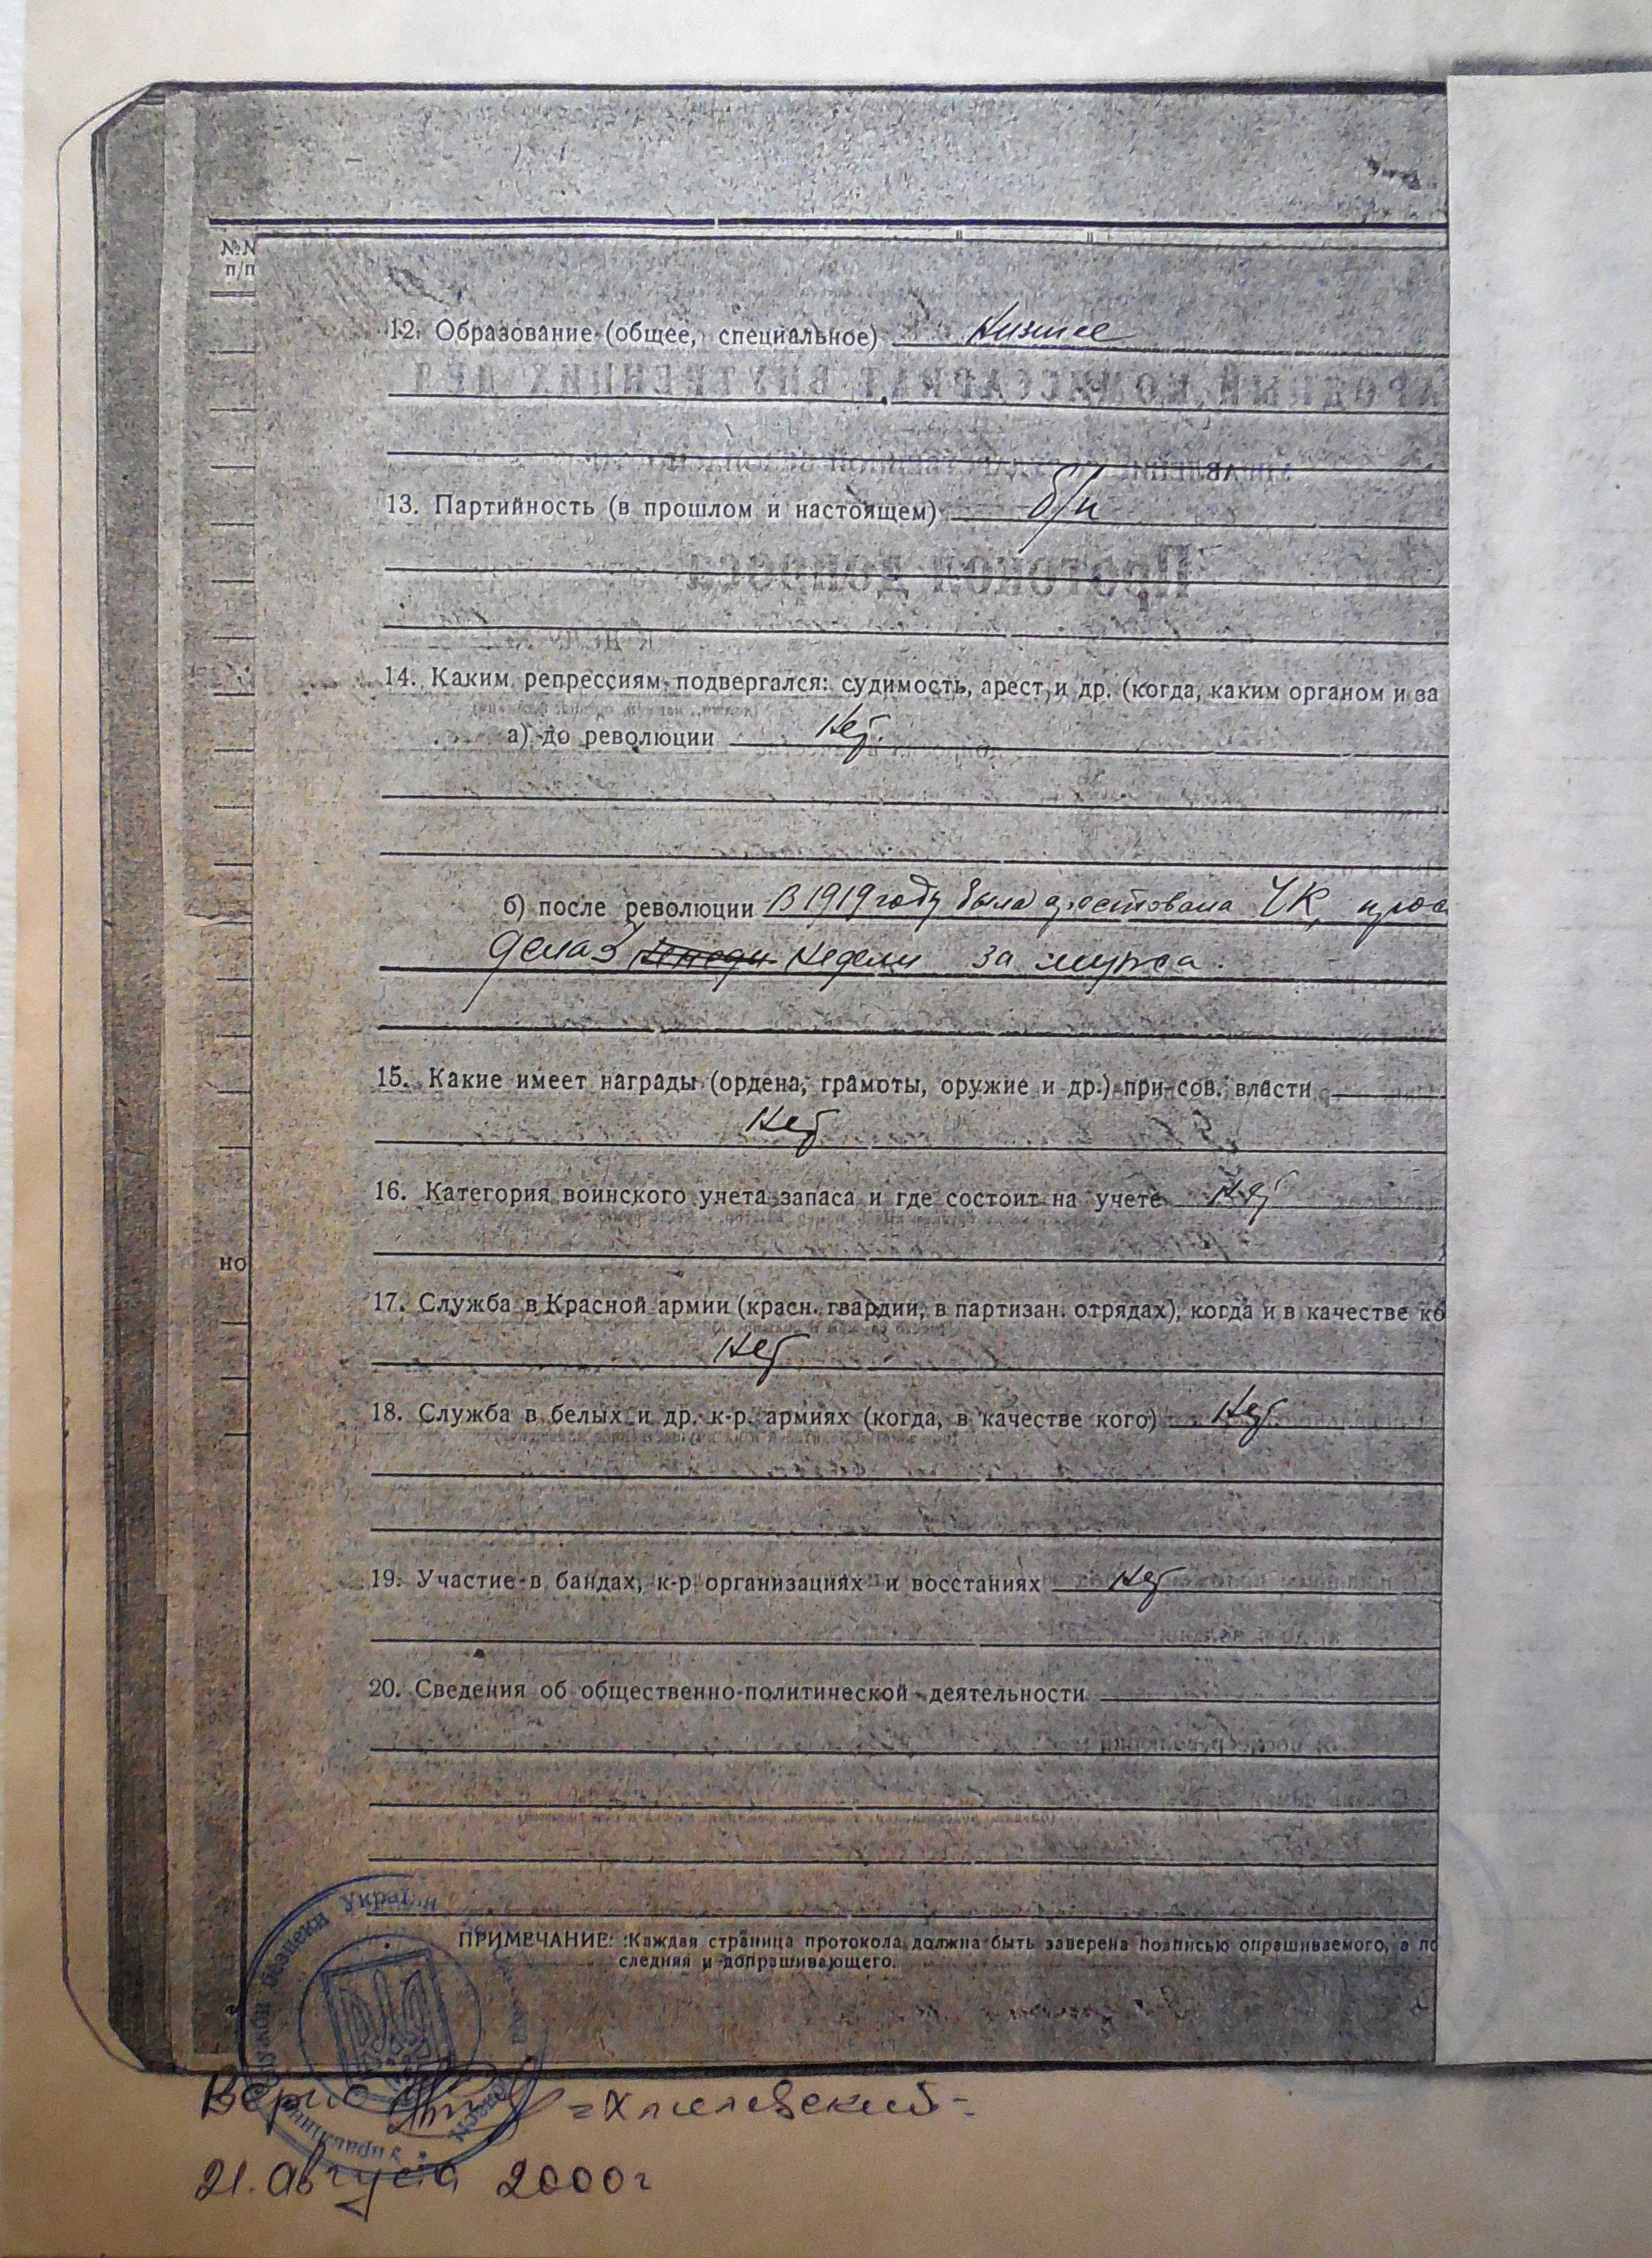 №№
п/п
12. Образование (общее, специальное) Низшее
13. Партийность (в прошлом и настоящем) б/п
14. Каким репрессиям подвергался: судимость, арест и др. (когда, каким органом и за
а) до революции Нет.
б) после революции В 1919 году была арестована ЧК,
3 недели за мужа.
15. Какие имеет награды (ордена, грамоты, оружие и др.) при сов. власти
Нет
16. Категория воинского учета запаса и где состоит на учете Нет
но
17. Служба в Красной армии (красн. гвардии, в партизан. отрядах), когда и в качестве ко
Нет
18. Служба в белых и др. к-р. армиях (когда, в качестве кого) Нет
19. Участие в бандах, к-р организациях и восстаниях Нет
20. Сведения об общественно-политической деятельности
ПРИМЕЧАНИЕ: Каждая страница протокола должна быть заверена подписью опрашиваемого, а по
следняя и допрашивающего.
Служби безпеки України
Верно
21. Августа 2000 г